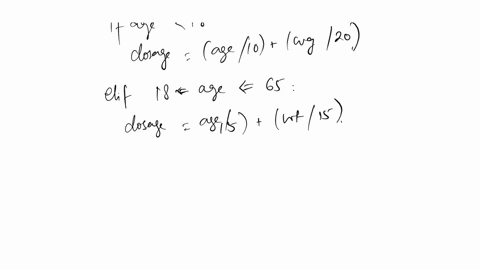 if age < 18
dosage = (age/10) + (wg/20)
elif 18 <= age <= 65:
dosage = age/5) + (wt/15).